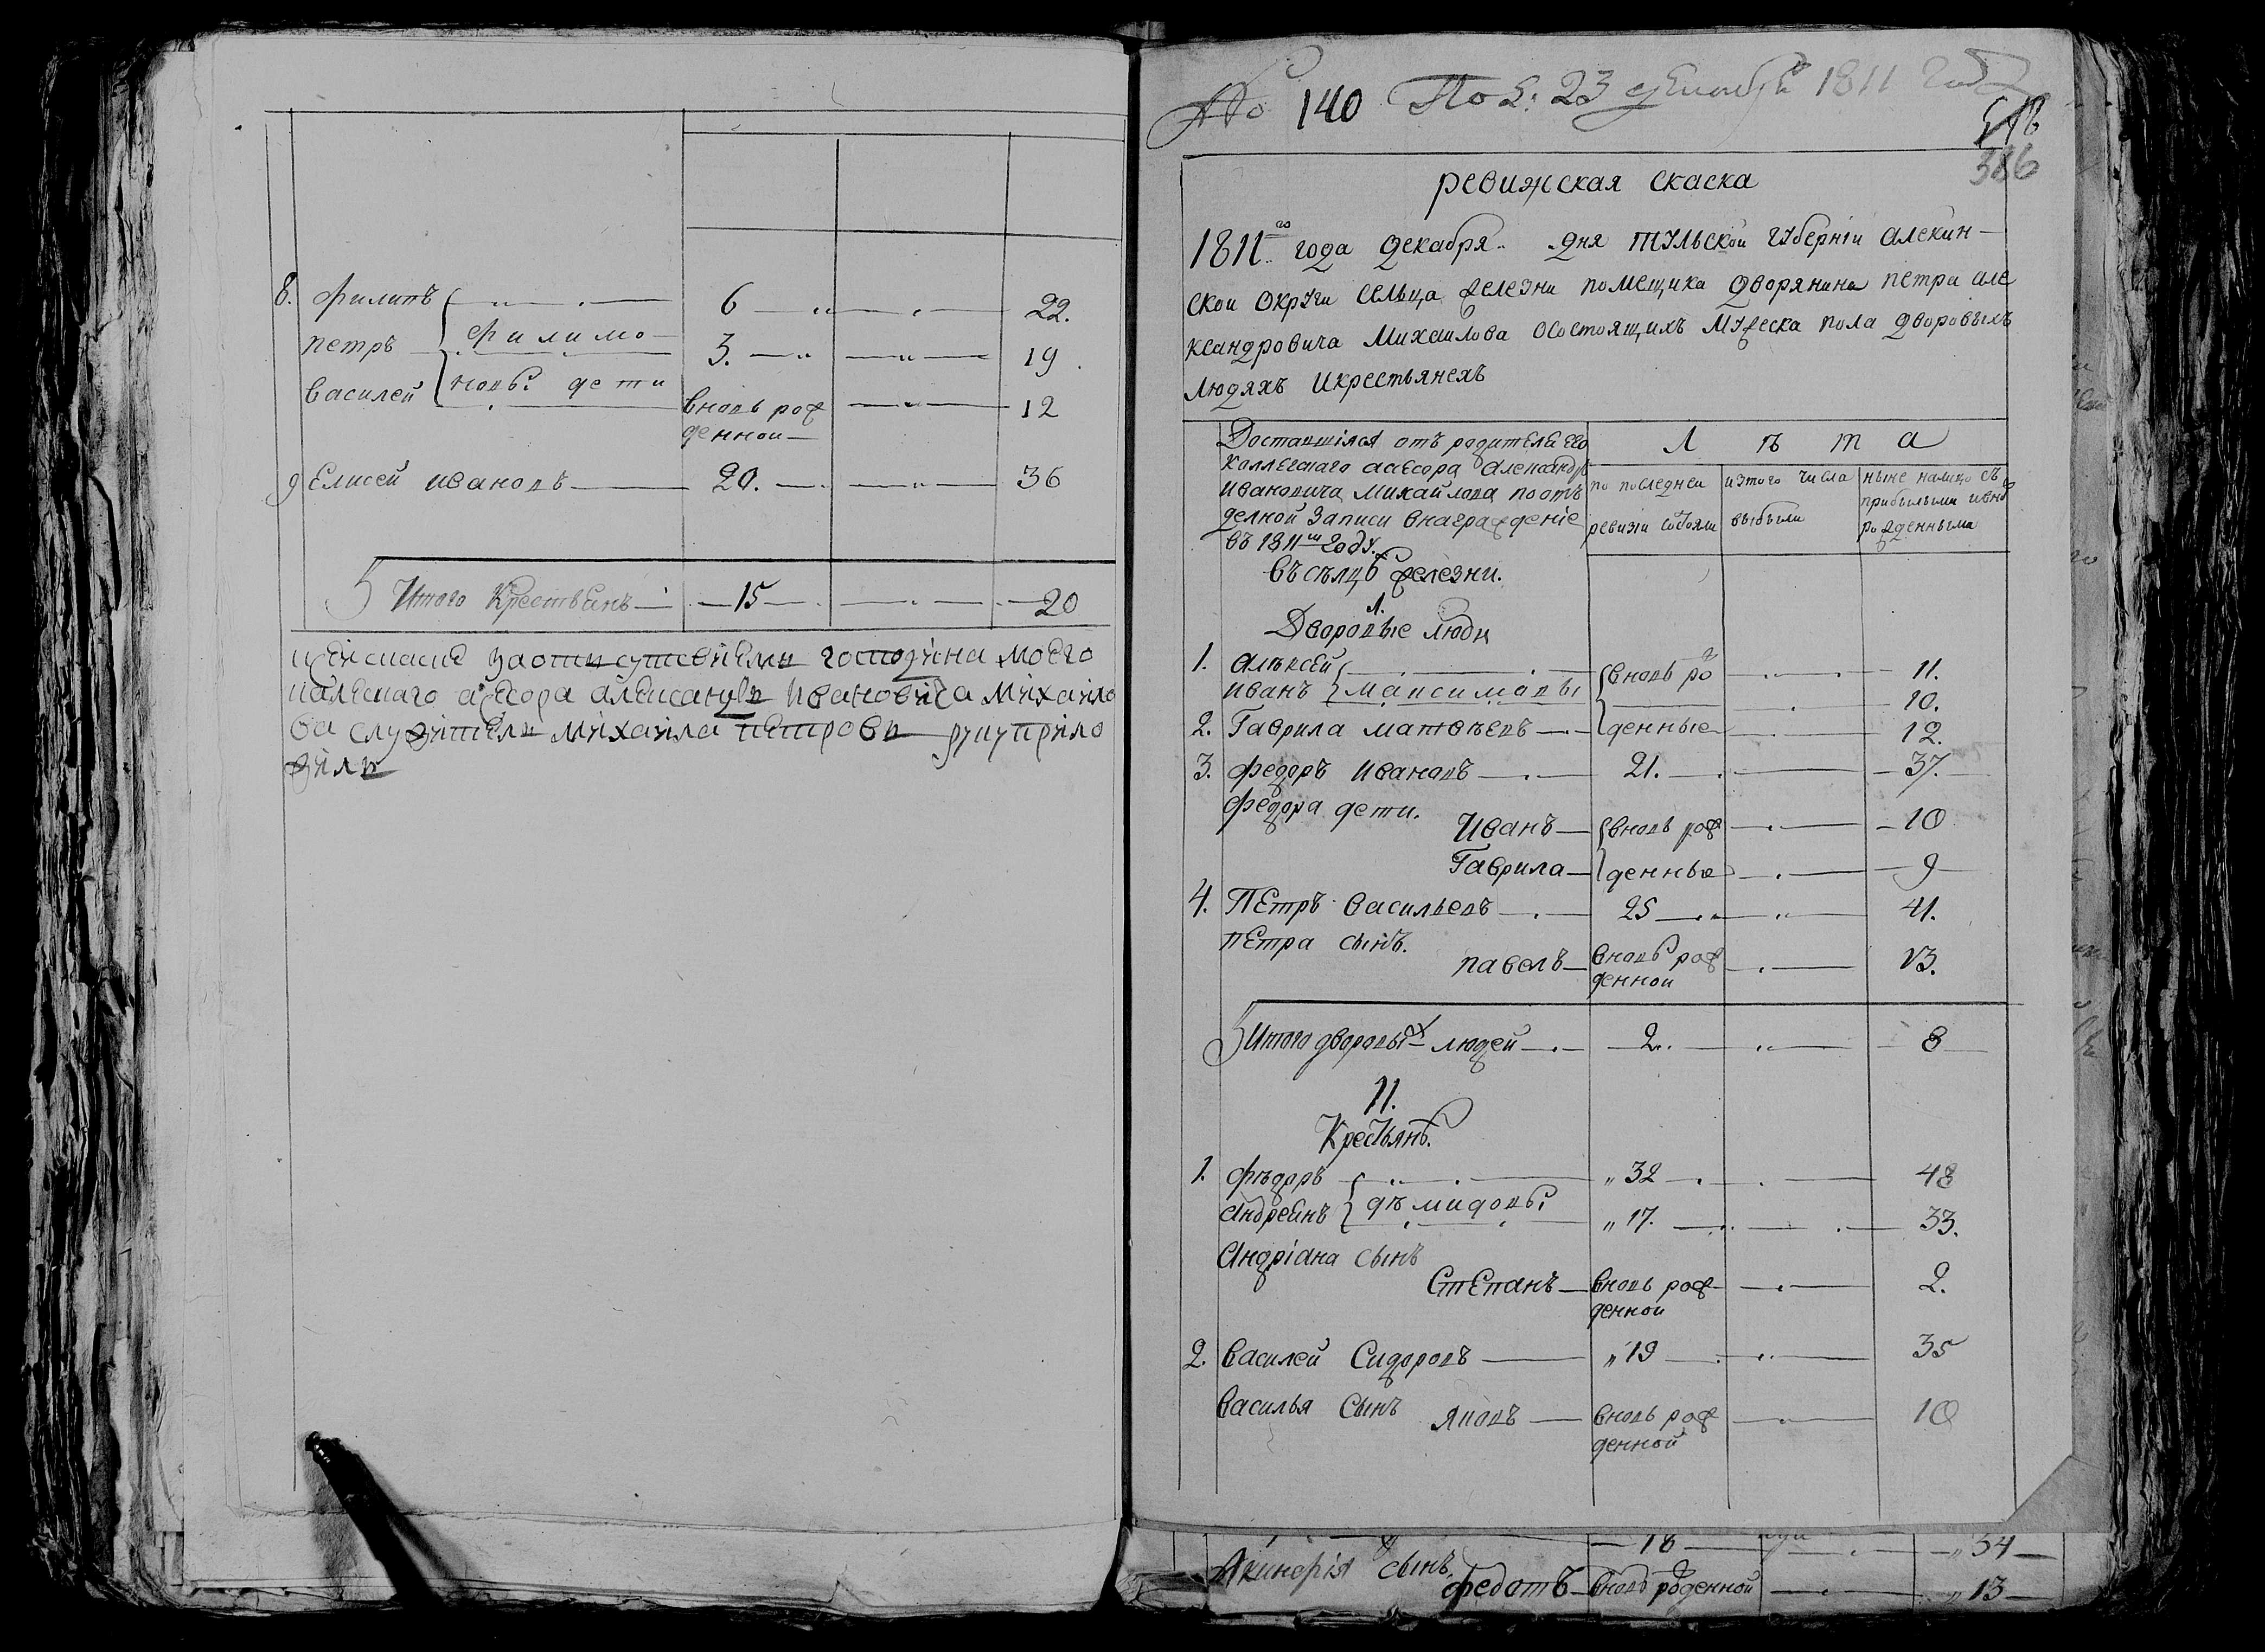 8. Филипъ 6 22.
Петръ Филимо- 3. 19.
Василей новы дети вновь рож 12
денной
9 Елисей Ивановъ 20. 36
Итого Крестьянъ 15 20
господина моего
ва служитель михаила петровъ руку прило
жилъ
№ 140 По 23 декабря 1811 Года
386
ревижская скаска
1811го года декабря дня тульской губерніи алекин-
ской округи сельца железни помещика дворянина петра але
ксандровича Михаилова осостоящихъ мужеска пола дворовыхъ
людяхъ икрестьянехъ
Доставшіяся отъ родителя его
коллеского асесора Александра
Ивановича Михайлова поотъ
делной записи внаграждение
въ 1811м году.
Л ѣ т а
по последней ревизіи состояли
изтого числа выбыли
ныне налицо съ прибылыми ивно рожденными
въ сельцѣ железни.
Дворовые люди
1. Алѣксей вновь ро 11.
иванъ Максимовы 10.
2. Гаврила матвѣевъ денные 12.
3. федоръ ивановъ 21. 37.
федора дети.
Иванъ вновь рож 10
Гаврила денные 9
4. Петръ васильевъ 25 41.
петра сынъ.
павелъ вновь рож 13.
денной
Итого дворовыхъ людей 2 8
II.
Крестьянъ.
1. Фѣдоръ 32 48
Андреинъ дѣмидовы 17. 33.
Андріана сынъ
Степанъ вновь рож 2.
денной
2. Василей Сидоровъ 19 35
Василья сынъ яковъ вновь рож 10
денной
18 34
сынъ.
федотъ вновь роденной 13